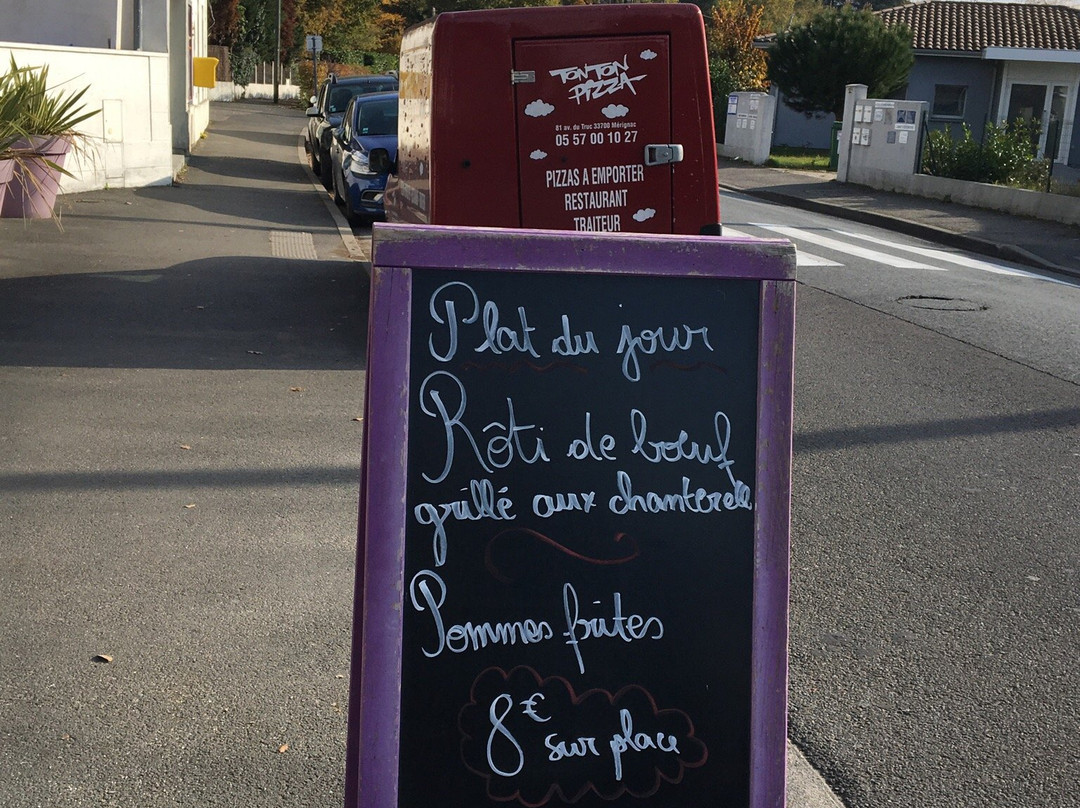 TONTON
PIZZA
81 av. du Truc 33700 Mérignac
05 57 00 10 27
PIZZAS A EMPORTER
RESTAURANT
TRAITEUR
Plat du jour
Rôti de bœuf
grillé aux chanterelle
Pommes frites
8€
sur place